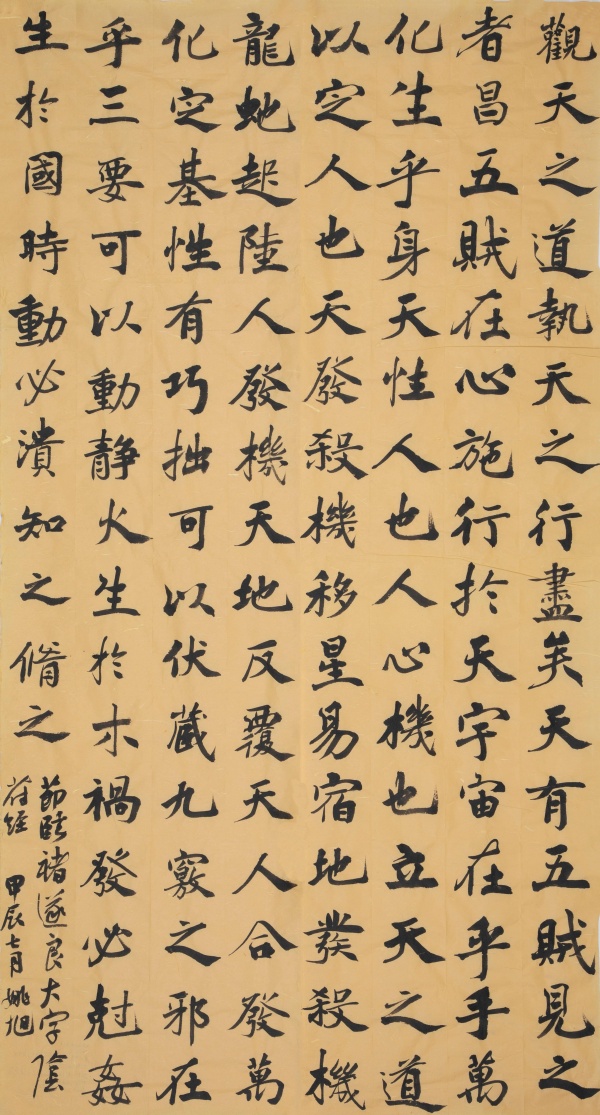 觀天之道執天之行盡矣天有五賊見之
者昌五賊在心施行於天宇宙在乎手萬
化生乎身天性人也人心機也立天之道
以定人也天發殺機移星易宿地發殺機
龍虵起陸人發機天地反覆天人合發萬
化定基性有巧拙可以伏藏九竅之邪在
乎三要可以動静火生於木禍發必尅姦
生於國時動必潰知之脩之
節臨褚遂良大字陰
符經 甲辰七月姚旭